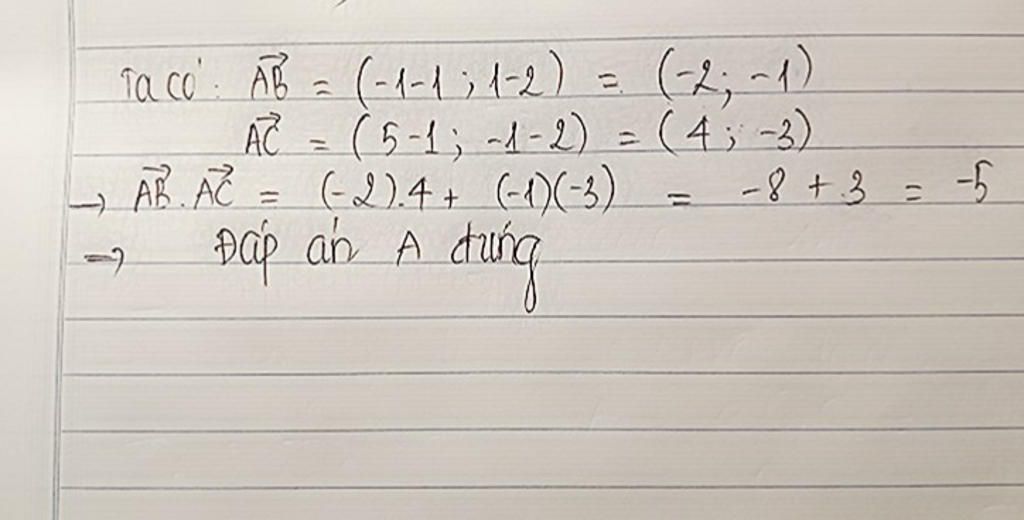 Ta có: \overrightarrow{AB} = (-1-1 ; 1-2) = (-2; -1)
\overrightarrow{AC} = (5-1; -1-2) = (4; -3)
→ \overrightarrow{AB}.\overrightarrow{AC} = (-2).4 + (-1)(-3) = -8 + 3 = -5
→ Đáp án A đúng